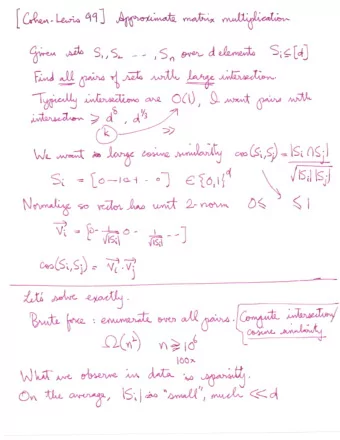 [Cohen-Lewis 99] Approximate matrix multiplication
Given sets S₁, S₂ - - -, Sₙ over d elements Sᵢ ⊆ [d]
Find all pairs of sets with large intersection
Typically intersections are O(1), & want pairs with
intersection ≥ d^δ, d^{1/3}
k ≫
We want large cosine similarity cos(Sᵢ,Sⱼ) = |Sᵢ ∩ Sⱼ| / √|Sᵢ||Sⱼ|
Sᵢ = [0 - 1 0 1 - 0] ∈ {0,1}^d
Normalize so vector has unit 2-norm 0 ≤ ≤ 1
V⃗ᵢ = [0 - 1/√|Sᵢ| 0 - 1/√|Sᵢ| - -]
cos(Sᵢ,Sⱼ) = V⃗ᵢ · V⃗ⱼ
Let's solve exactly.
Brute force : enumerate over all pairs. [Compute intersection/
cosine similarity
Ω(n²) n ≥ 10⁶
100x
What we observe in data is sparsity.
On the average, |Sᵢ| is "small", much ≪ d